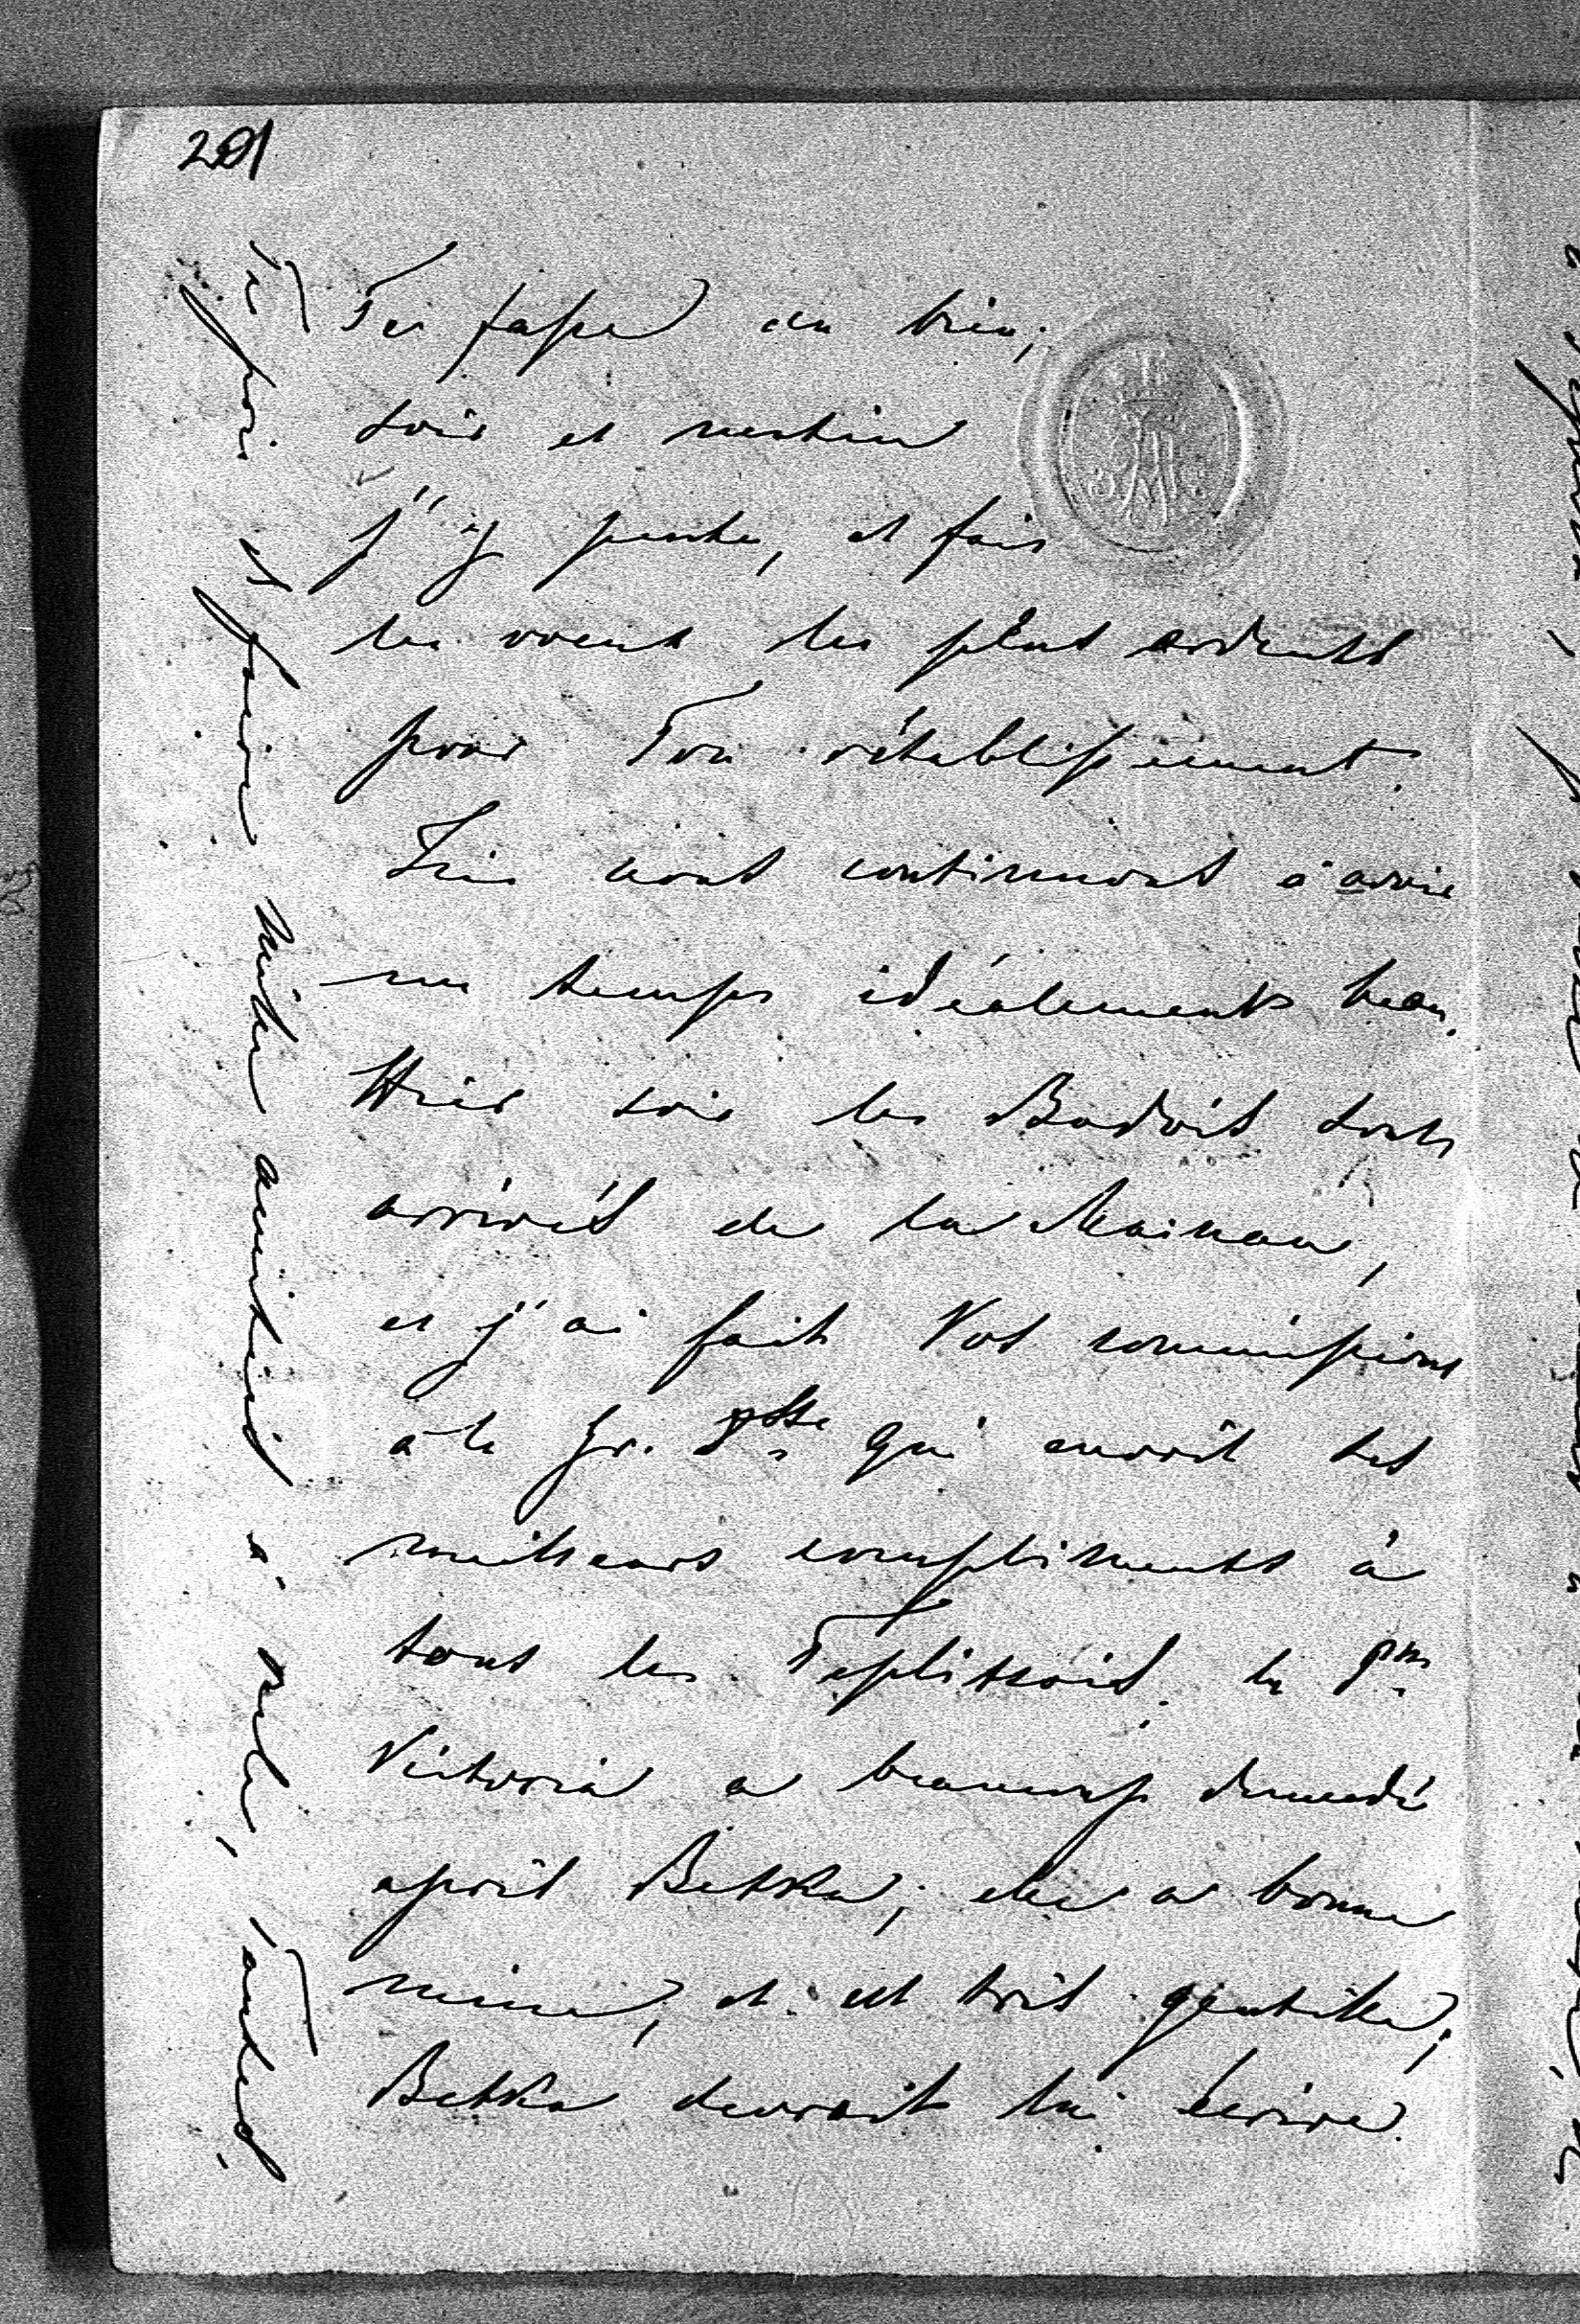 201
Te fasse du bien;
soir et matin
j'y pense, et fais
les voeux les plus ardents
pour Ton rétablissement.
Ici nous continuons à avoir
un temps idéalement beau.
Hier soir les Badois sont
arrivés de la Mainau,
et j'ai fait Vos commissions
à la Gr. Dsse qui envoit ses
meilleurs compliments à
tous les Teplitzois. La Pss
Victoria a beaucoup demandé
après Betka; elle a bonne
mine, et est très gentille;
Betka devrait lui écrire.
et faire mille amitiés